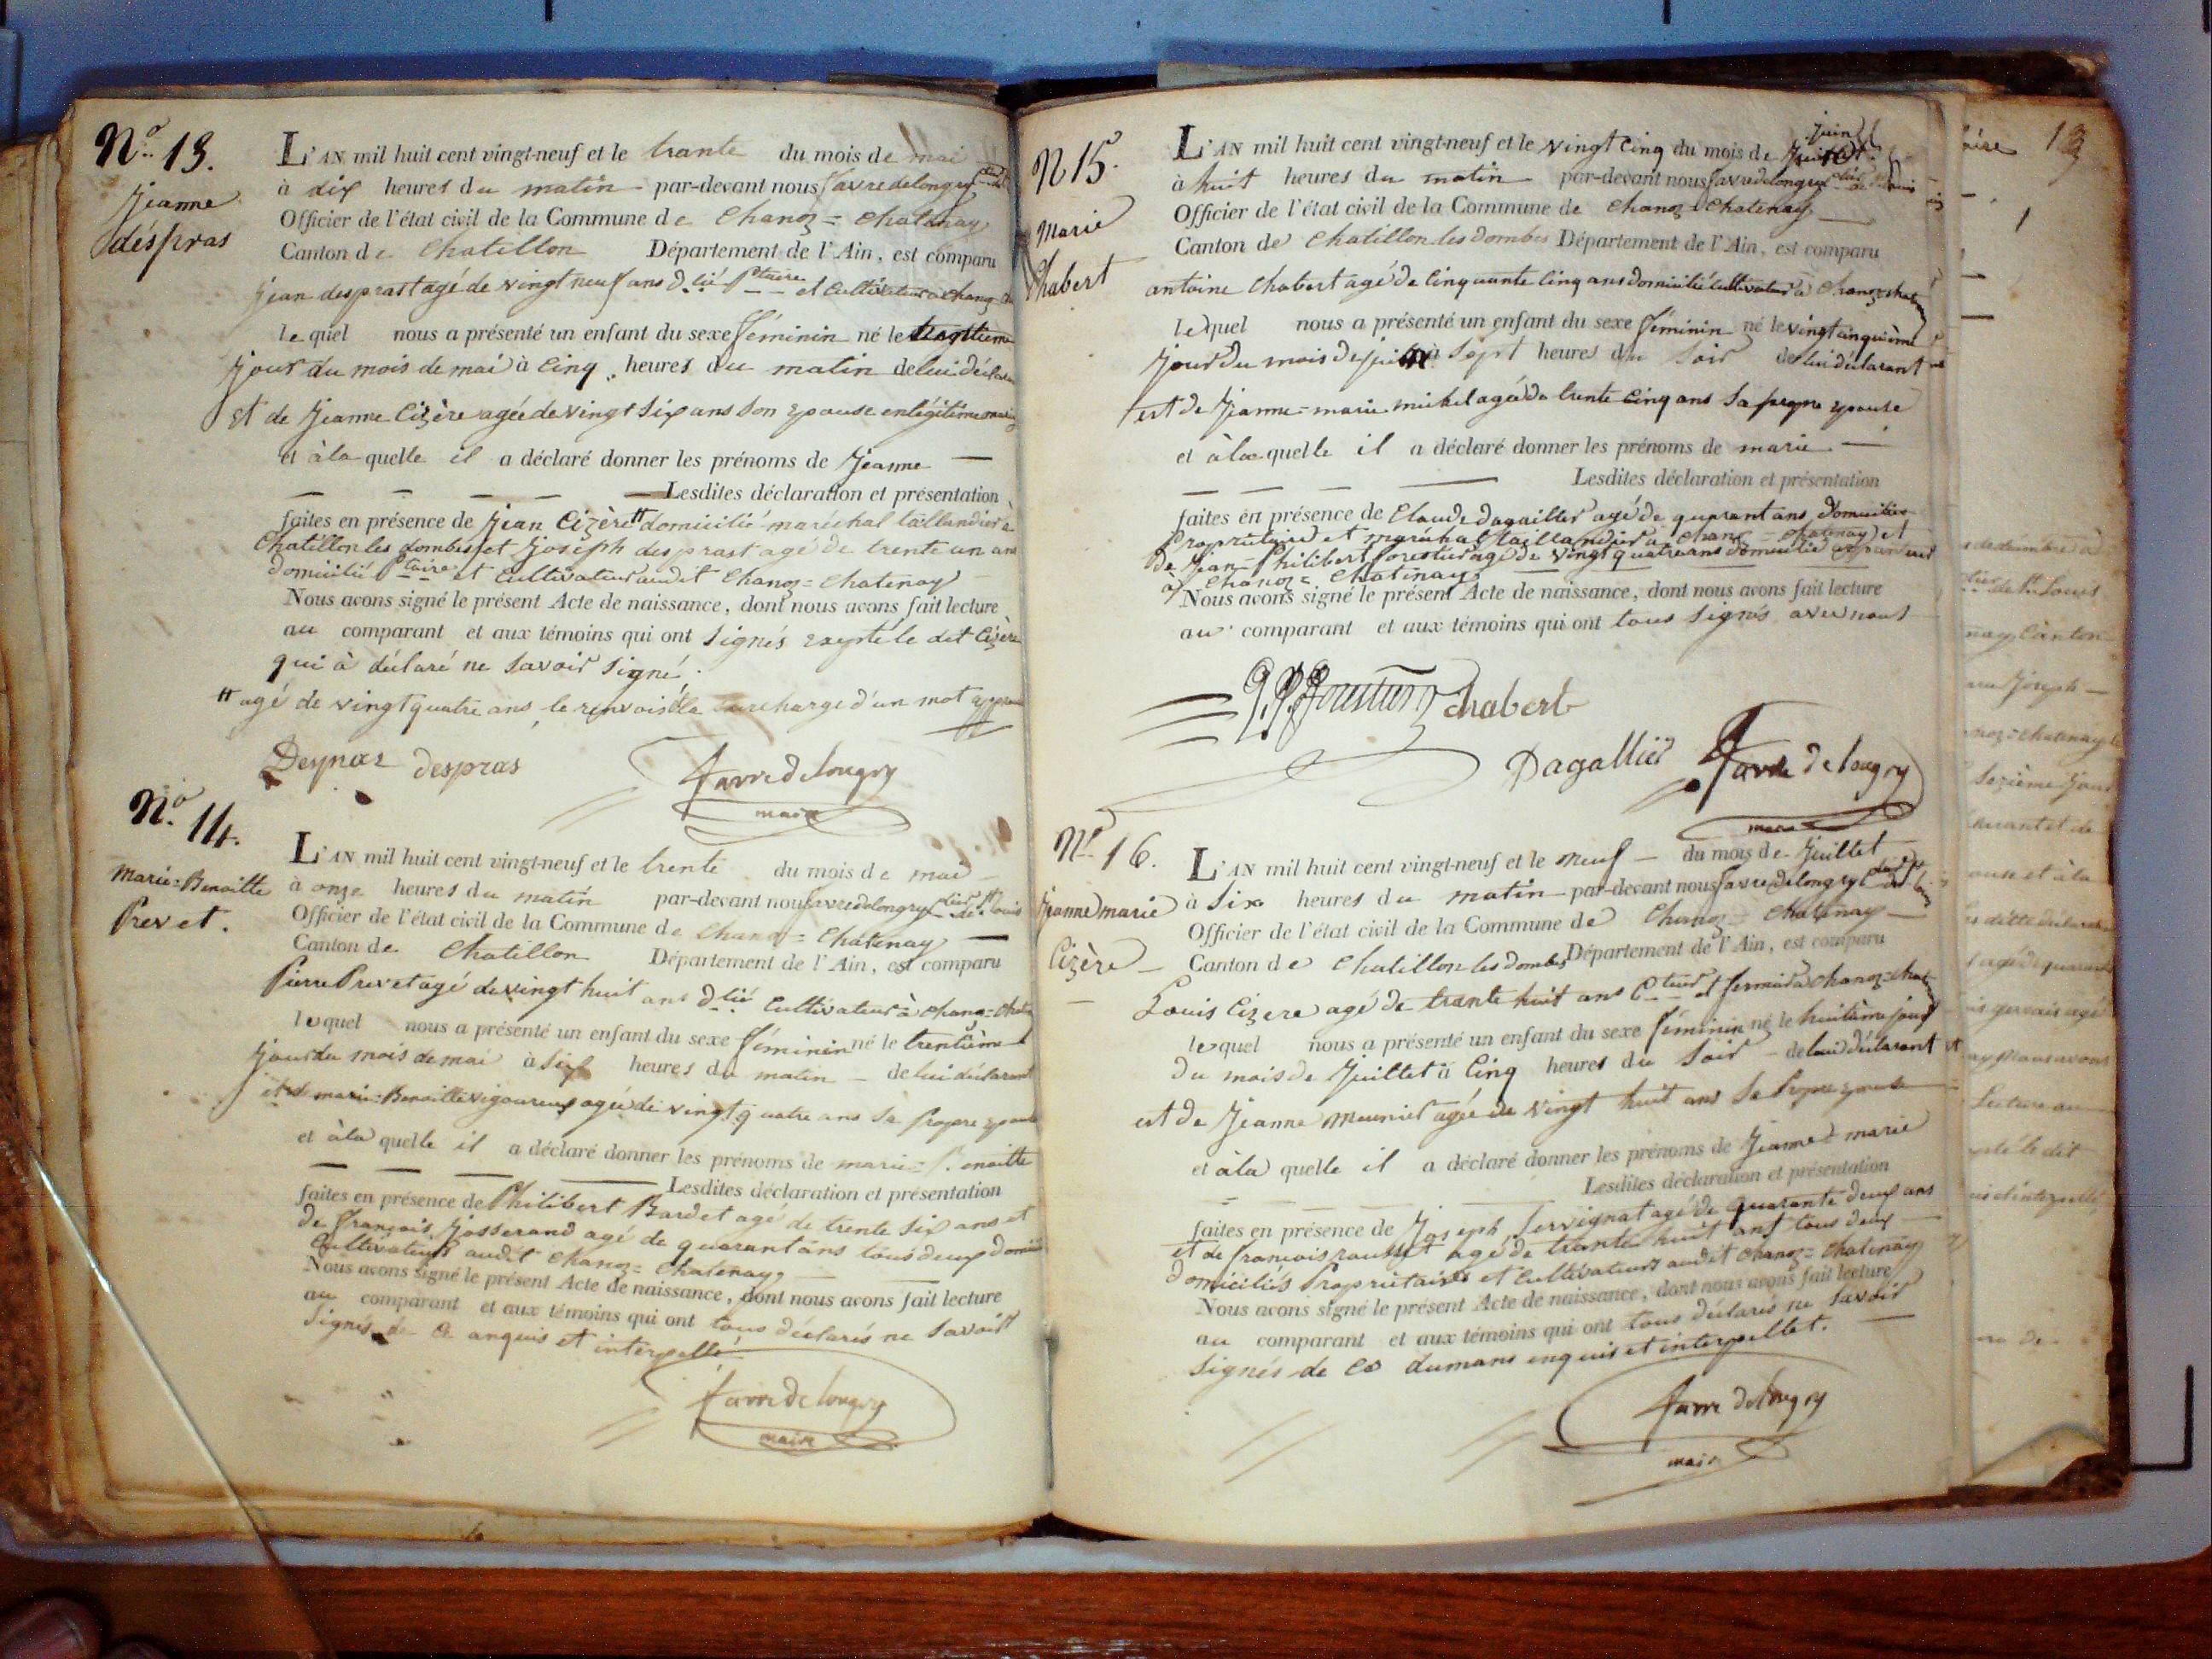 No. 13.
Jeanne
déspras
L'AN mil huit cent vingt-neuf et le trante du mois de mai
à dix heures du matin par-devant nous favredelongry
Officier de l'état civil de la Commune de Chanoz = Chatenay
Canton de Chatillon Département de l'Ain, est comparu
jean desprast agé de vingt neuf ans d.lié P.taire et Cultivateur à Chanoz
lequel nous a présenté un enfant du sexe féminin né le
jour du mois de mai à Cinq heures du matin de lui déclarant
Et de Jeanne Cizère agée de vingt six ans son epouse en légitime
et à la quelle il a déclaré donner les prénoms de Jeanne —
Lesdites déclaration et présentation
faites en présence de Jean Cizère # domicilié maréchal taillandier à
Chatillon les dombes et Joseph desprast agé de trente un ans
domicilié P.taire et Cultivateur audit Chanoz = Chatenay
Nous avons signé le présent Acte de naissance, dont nous avons fait lecture
au comparant et aux témoins qui ont signés exepté le dit Cizère
qui à déclaré ne savoir signé.
# agé de vingt quatre ans, le renvois et la surcharge d'un mot
despras
favre de longry
maire
No. 14.
Marie = Benoitte
Prevet.
L'AN mil huit cent vingt-neuf et le trente du mois de mai
à onze heures du matin par-devant nous favredelongry
Officier de l'état civil de la Commune de Chanoz = Chatenay —
Canton de Chatillon Département de l'Ain, est comparu
Pierre Prevet agé de vingt huit ans d.lié Cultivateur à Chanoz = Chate
lequel nous a présenté un enfant du sexe féminin né le trentième
jour du mois de mai à six heures du matin — de lui déclarant
et de marie = Benoitte vigoureux agée de vingt quatre ans sa propre epouse
et à la quelle il a déclaré donner les prénoms de marie = Benoitte
Lesdites déclaration et présentation
faites en présence de Philibert Bardet agé de trente six ans et
de françois Josserand agé de quarant ans tous deux
Cultivateurs audit Chanoz = Chatenay
Nous avons signé le présent Acte de naissance, dont nous avons fait lecture
au comparant et aux témoins qui ont tous déclarés ne savoir
signés de ce enquis et interpellé
favre de longry
maire
N 15.
Marie
Chabert
L'AN mil huit cent vingt-neuf et le vingt Cinq du mois de juin
à huit heures du matin par-devant nous favredelongry
Officier de l'état civil de la Commune de Chanoz = Chatenay —
Canton de Chatillon les dombes Département de l'Ain, est comparu
antoine Chabert agé de Cinquante Cinq ans domicilié cultivateur à Chanoz = Chatenay
lequel nous a présenté un enfant du sexe féminin né le vingt cinquième
jour du mois de juin à sept heures du soir de lui déclarant
et de Jeanne = marie michel agée de trente cinq ans sa propre epouse
et à la quelle il a déclaré donner les prénoms de marie —
Lesdites déclaration et présentation
faites en présence de Claude dagallier agé de quarant ans domicilié
Propriétaire et maréchal taillandier à Chanoz = Chatenay et
de Jean = Philibert forestier agé de vingt quatre ans domicilié
à Chanoz = Chatenay
Nous avons signé le présent Acte de naissance, dont nous avons fait lecture
au comparant et aux témoins qui ont tous signés avec nous
Chabert
Dagallier favre de longry
maire
No. 16.
Jeanne marie
Cizère —
L'AN mil huit cent vingt-neuf et le neuf — du mois de Juillet
à six heures du matin par-devant nous favredelongry
Officier de l'état civil de la Commune de Chanoz = Chatenay —
Canton de Chatillon les dombes Département de l'Ain, est comparu
Louis Cizere agé de trente huit ans C.teur et fermier à Chanoz = Chatenay
lequel nous a présenté un enfant du sexe féminin né le huitième jour
du mois de Juillet à Cinq heures du soir — de lui déclarant
et de Jeanne meunier agée de vingt huit ans sa propre epouse
et à la quelle il a déclaré donner les prénoms de Jeanne = marie
Lesdites déclaration et présentation
faites en présence de Joseph Servignat agé de quarante deux ans
et de francois rousset agé de trante huit ans tous deux
domiciliés Propriétaires et Cultivateurs audit Chanoz = Chatenay
Nous avons signé le présent Acte de naissance, dont nous avons fait lecture
au comparant et aux témoins qui ont tous déclarés ne savoir
signés de ce dumans enquis et interpellet.
favre de longry
maire